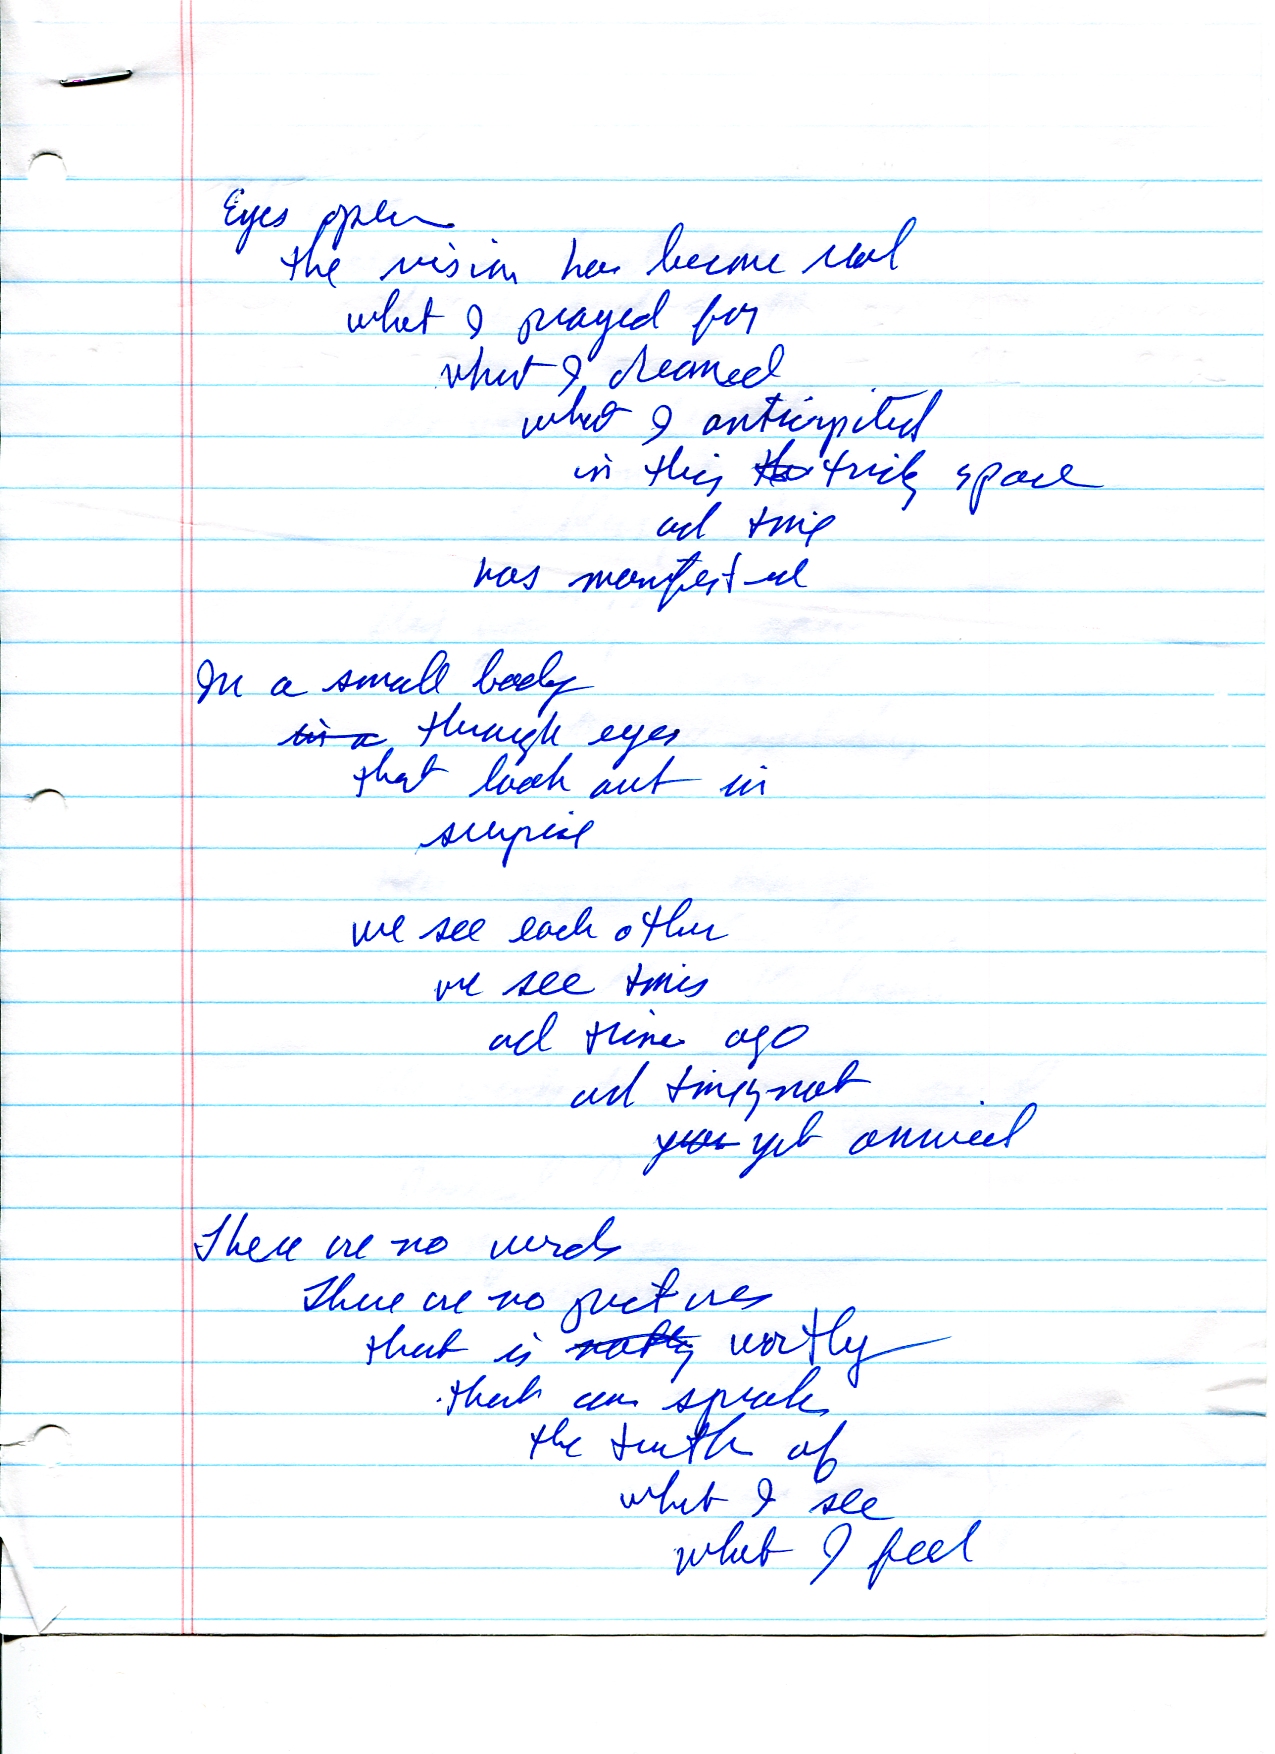 Eyes open
the vision has become real
what I prayed for
what I dreamed
what I anticipated
in this space
and time
has manifested
In a small body
in a through eyes
that look out in
surprise
we see each other
we see times
and times ago
and times not
yet arrived
There are no words
There are no pictures
that is worthy
that can speak
the truth of
what I see
what I feel